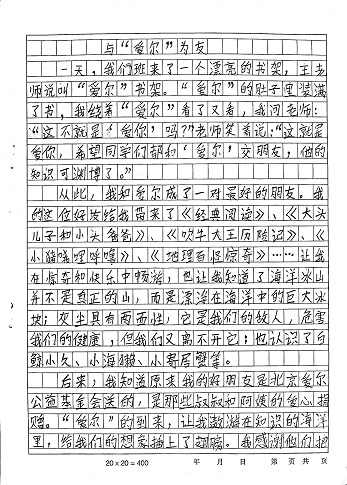 与“爱尔”为友
一天，我们班来了一个漂亮的书架，王老
师说叫“爱尔”书架。“爱尔”的肚子里装满
了书，我绕着“爱尔”看了又看，我问老师：
“这不就是‘爱你’吗？”老师笑着说：“这就是
爱你，希望同学们都和‘爱尔’交朋友，他的
知识可渊博了。”
从此，我和爱尔成了一对最好的朋友。我
的这位好友给我带来了《经典阅读》、《大头
儿子和小头爸爸》、《吹牛大王历险记》、《
小猪唏哩呼噜》、《地理百怪惊奇》……让我
在惊奇和快乐中畅游，也让我知道了海洋冰山
并不是真正的山，而是漂浮在海洋中的巨大冰
块；灰尘具有两面性，它是我们的敌人，危害
我们的健康，但我们又离不开它；也认识了白
鲸小久、小海獭、小寄居蟹等。
后来，我知道原来我的好朋友是北京爱尔
公益基金会送的，是那些叔叔和阿姨的爱心捐
赠。“爱尔”的到来，让我遨游在知识的海洋
里，给我们的想象插上了翅膀。我感谢他们把
20×20=400 年 月 日 第 页 共 页